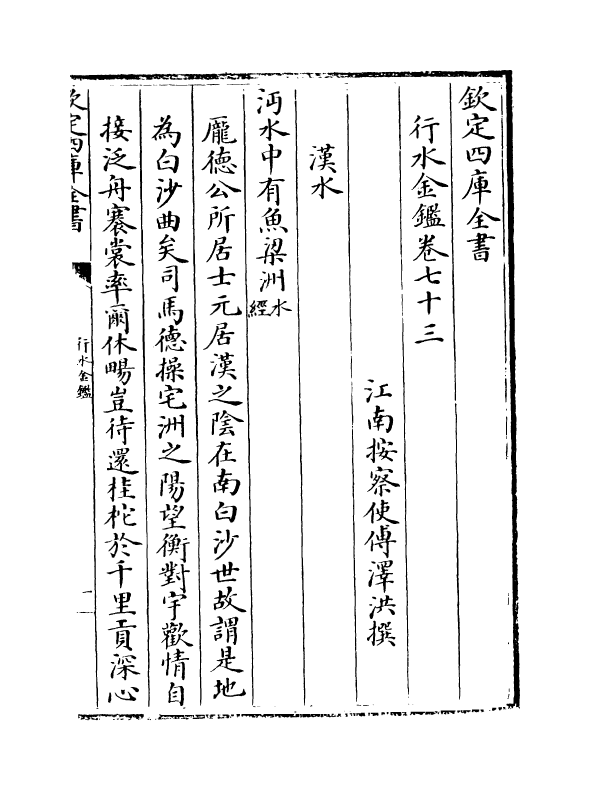 欽定四庫全書
行水金鑑卷七十三
江南按察使傅澤洪撰
漢水
沔水中有魚梁洲水經
龐德公所居士元居漢之陰在南白沙世故謂是地
為白沙曲矣司馬德操宅洲之陽望衡對宇歡情自
接泛舟褰裳率爾休暢豈待還桂柁於千里貢深心
欽定四庫全書
行水金鑑
一